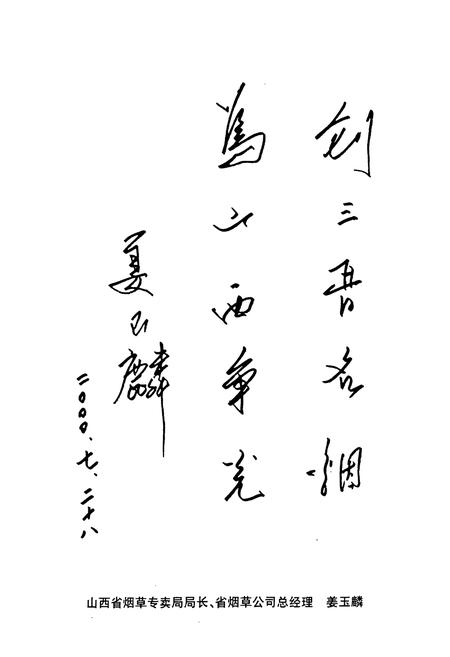 创三晋名烟
为山西争光
姜玉麟
二〇〇〇、七、二十八
山西省烟草专卖局局长、省烟草公司总经理　姜玉麟